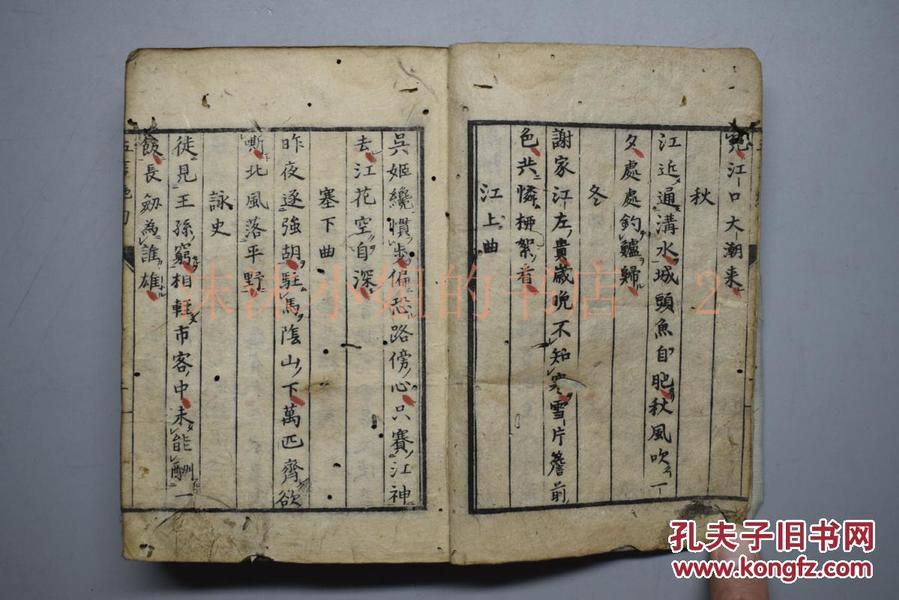 江口大潮来
秋
江近通溝水城頭魚自肥秋風吹一
夕處處釣鱸歸
冬
謝家江左貴歳晩不知寒雪片簷前
色共憐柳絮看
江上曲
吳姬纔慣步偏恐路傍心只賽江神
去江花空自深
塞下曲
昨夜逐強胡駐馬陰山下萬匹齊欲
嘶北風落平野
詠史
徒見王孫窮相輕市客中未能酬一
飯長劒為誰雄
孔夫子旧书网
www.kongfz.com